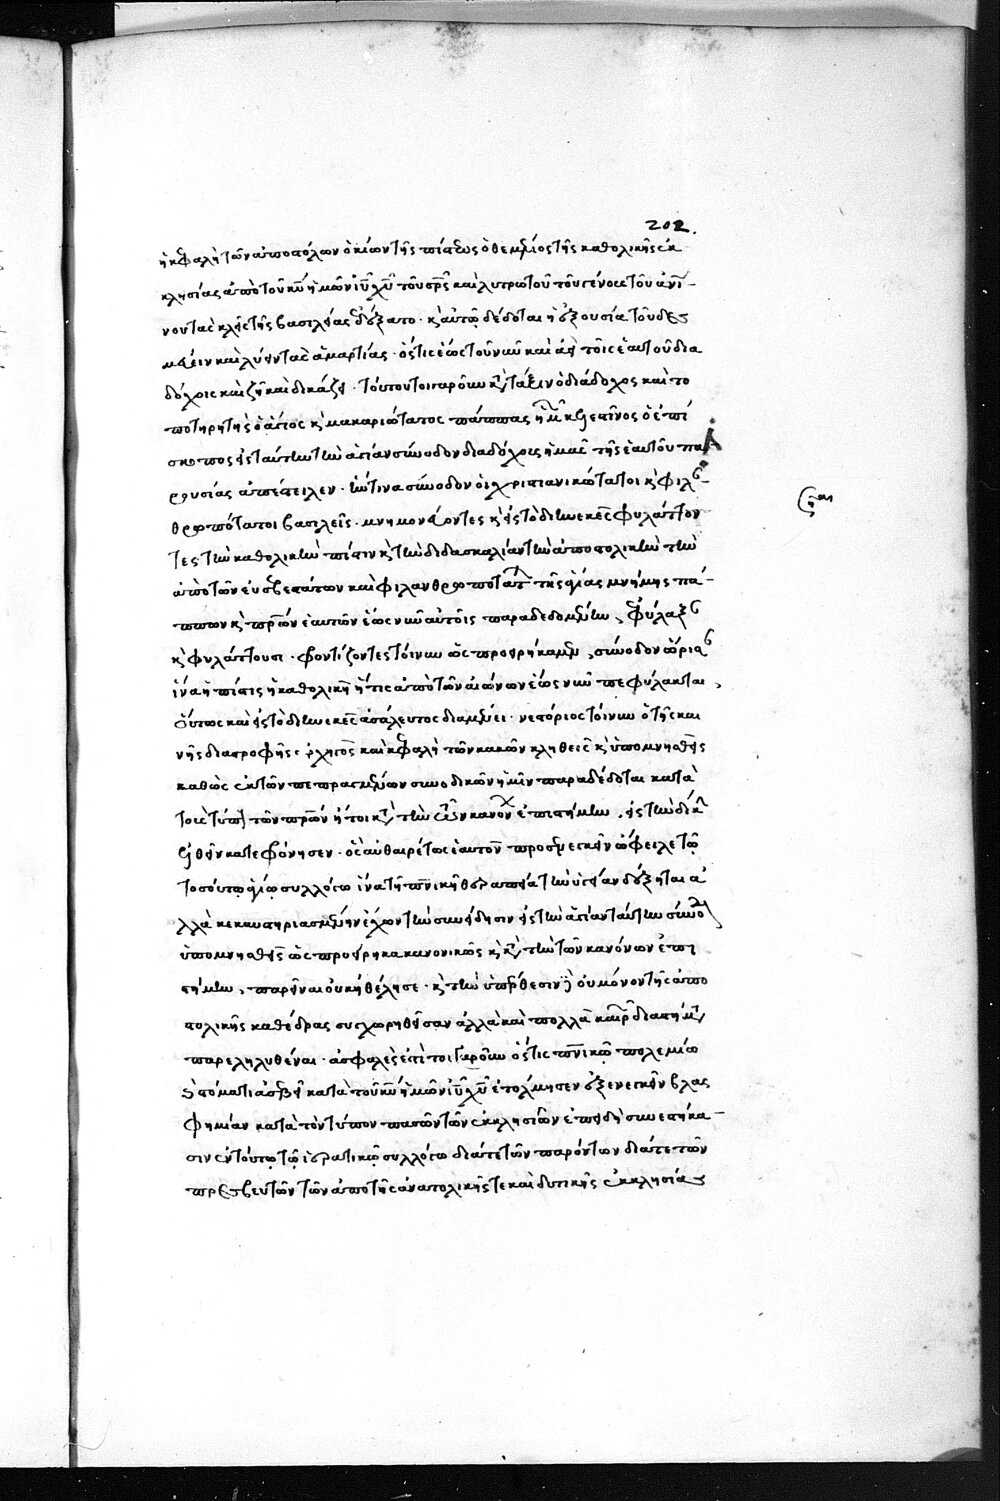 202.
ἡ κεφαλὴ τῶν ἀποστόλων ὁ κίων τῆς πίστεως ὁ θεμέλιος τῆς καθολικῆς ἐκ
κλησίας ἀπὸ τοῦ κυ ἡμῶν ιυ χυ τοῦ σρς καὶ λυτρωτοῦ τοῦ γένους τοῦ ἀνι-
νου τὰς κλεῖς τῆς βασιλείας ἐδέξατο · κ αὐτῷ δέδοται ἡ ἐξουσία τοῦ δεσ
μεύειν καὶ λύειν τὰς ἁμαρτίας · ὅστις ἕως τοῦ νῦν καὶ ἀεὶ τοῖς ἑαυτοῦ δια
δόχοις καὶ ζῆ καὶ δικάζει · τούτου τοιγαροῦν κατὰ τάξιν ὁ διάδοχος καὶ το
ποτηρητὴς ὁ ἅγιος κ μακαριώτατος πάππας ἡμῶν κελεστῖνος ὁ ἐπί
σκοπος εἰς ταύτην τὴν ἁγίαν σύνοδον διαδόχους ἡμᾶς τῆς ἑαυτοῦ πα
ρουσίας ἀπέστειλεν · ἥντινα σύνοδον οἱ χριστιανικώτατοι κ φιλ-
θρωπότατοι βασιλεῖς · μνημονεύοντες κ εἰς τὸ διηνεκὲς φυλάττον
τες τὴν καθολικὴν πίστιν κ τὴν διδασκαλίαν τὴν ἀποστολικὴν τὴν
ἀπὸ τῶν εὐσεβεστάτων καὶ φιλανθρωποτάτ τῆς ἁγίας μνήμης πά-
ππων κ πρων ἑαυτῶν ἕως νῦν αὐτοῖς παραδεδομένην, ἐφύλαξ
κ φυλάττουσι · φροντίζοντες τοίνυν ὡς προειρήκαμεν, σύνοδον ὥρισ
ἵνα ἡ πίστις ἡ καθολικὴ ἥτις ἀπὸ τῶν αἰώνων ἕως νῦν πεφύλακται,
οὕτως καὶ εἰς τὸ διηνεκὲς ἀσάλευτος διαμένει · νεστόριος τοίνυν ὁ τῆς και
νῆς διαστροφῆς ἀρχηγὸς καὶ κεφαλὴ τῶν κακῶν κληθεὶς κ ὑπομνησθεὶς
καθὼς ἐκ τῶν πεπραγμένων συνοδικῶν ἡμῖν παραδέδοται κατὰ
τοὺς τύπ τῶν πρων ἤτοι κ τὴν τῶν κανόν ἐπιστήμην · εἰς τὴν δίκ
ἐλθεῖν κατεφρόνησεν · ὃς αὐθαιρέτως ἑαυτὸν προσενεγκεῖν ὤφειλε τῷ
τοσούτῳ ἁγίῳ συλλόγῳ ἵνα τῇ πνικῇ θεραπείᾳ τὴν ὑγείαν δέξηται ἀ
λλὰ κεκαυτηριασμένην ἔχων τὴν συνείδησιν εἰς τὴν ἁγίαν ταύτην σύνο
ὑπομνησθεὶς ὡς προείρηκα κανονικῶς κ κ τὴν τῶν κανόνων ἐπι
στήμην, παρεῖναι οὐκ ἠθέλησε · κ τὴν ὑπέρθεσιν οὐ μόνον τῆς ἀπο
στολικῆς καθέδρας συγχωρηθεῖσαν ἀλλὰ καὶ πολλὰ καιρ διαστήμ
παρεληλυθέναι · ἀσφαλὲς ἐστὶ τοιγαροῦν ὅστις πνικῷ πολεμίῳ
στόματι ἀσεβεῖ κατὰ τοῦ κυ ἡμῶν ιυ χυ ἐτόλμησεν ἐξενεγκεῖν βλας
φημίαν κατὰ τὸν τύπον πασῶν τῶν ἐκκλησιῶν ἐπειδὴ συνέστηκα-
σιν ἐν τούτῳ τῷ ἱερατικῷ συλλόγῳ διά τε τῶν παρόντων διά τε τῶν
πρεσβευτῶν τῶν ἀπὸ τῆς ἀνατολικῆς τε καὶ δυτικῆς ἐκκλησίας